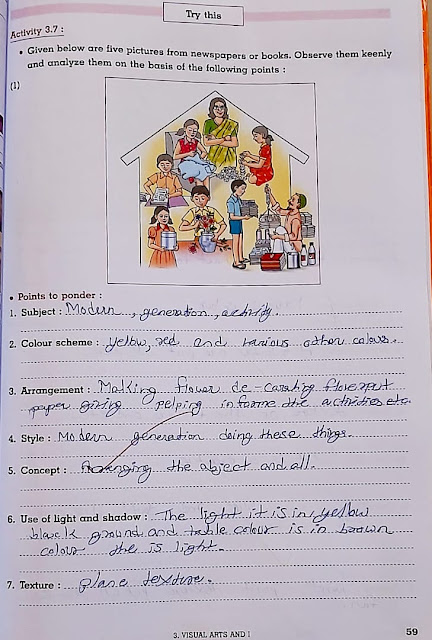 Try this
Activity 3.7 :
• Given below are five pictures from newspapers or books. Observe them keenly
and analyze them on the basis of the following points :
(1)
• Points to ponder :
1. Subject : Modern, generation, activity.
2. Colour scheme : yellow, red and various other colours.
3. Arrangement : Making flower de-carating flowerpot
paper giving pelping informe the activities etc.
4. Style : Modern generation doing these things.
5. Concept : Arranging the abject and all.
6. Use of light and shadow : The light it is in yellow
blawk ground and table colour is in brown
colour the is light.
7. Texture : plane texture.
3. VISUAL ARTS AND I
59